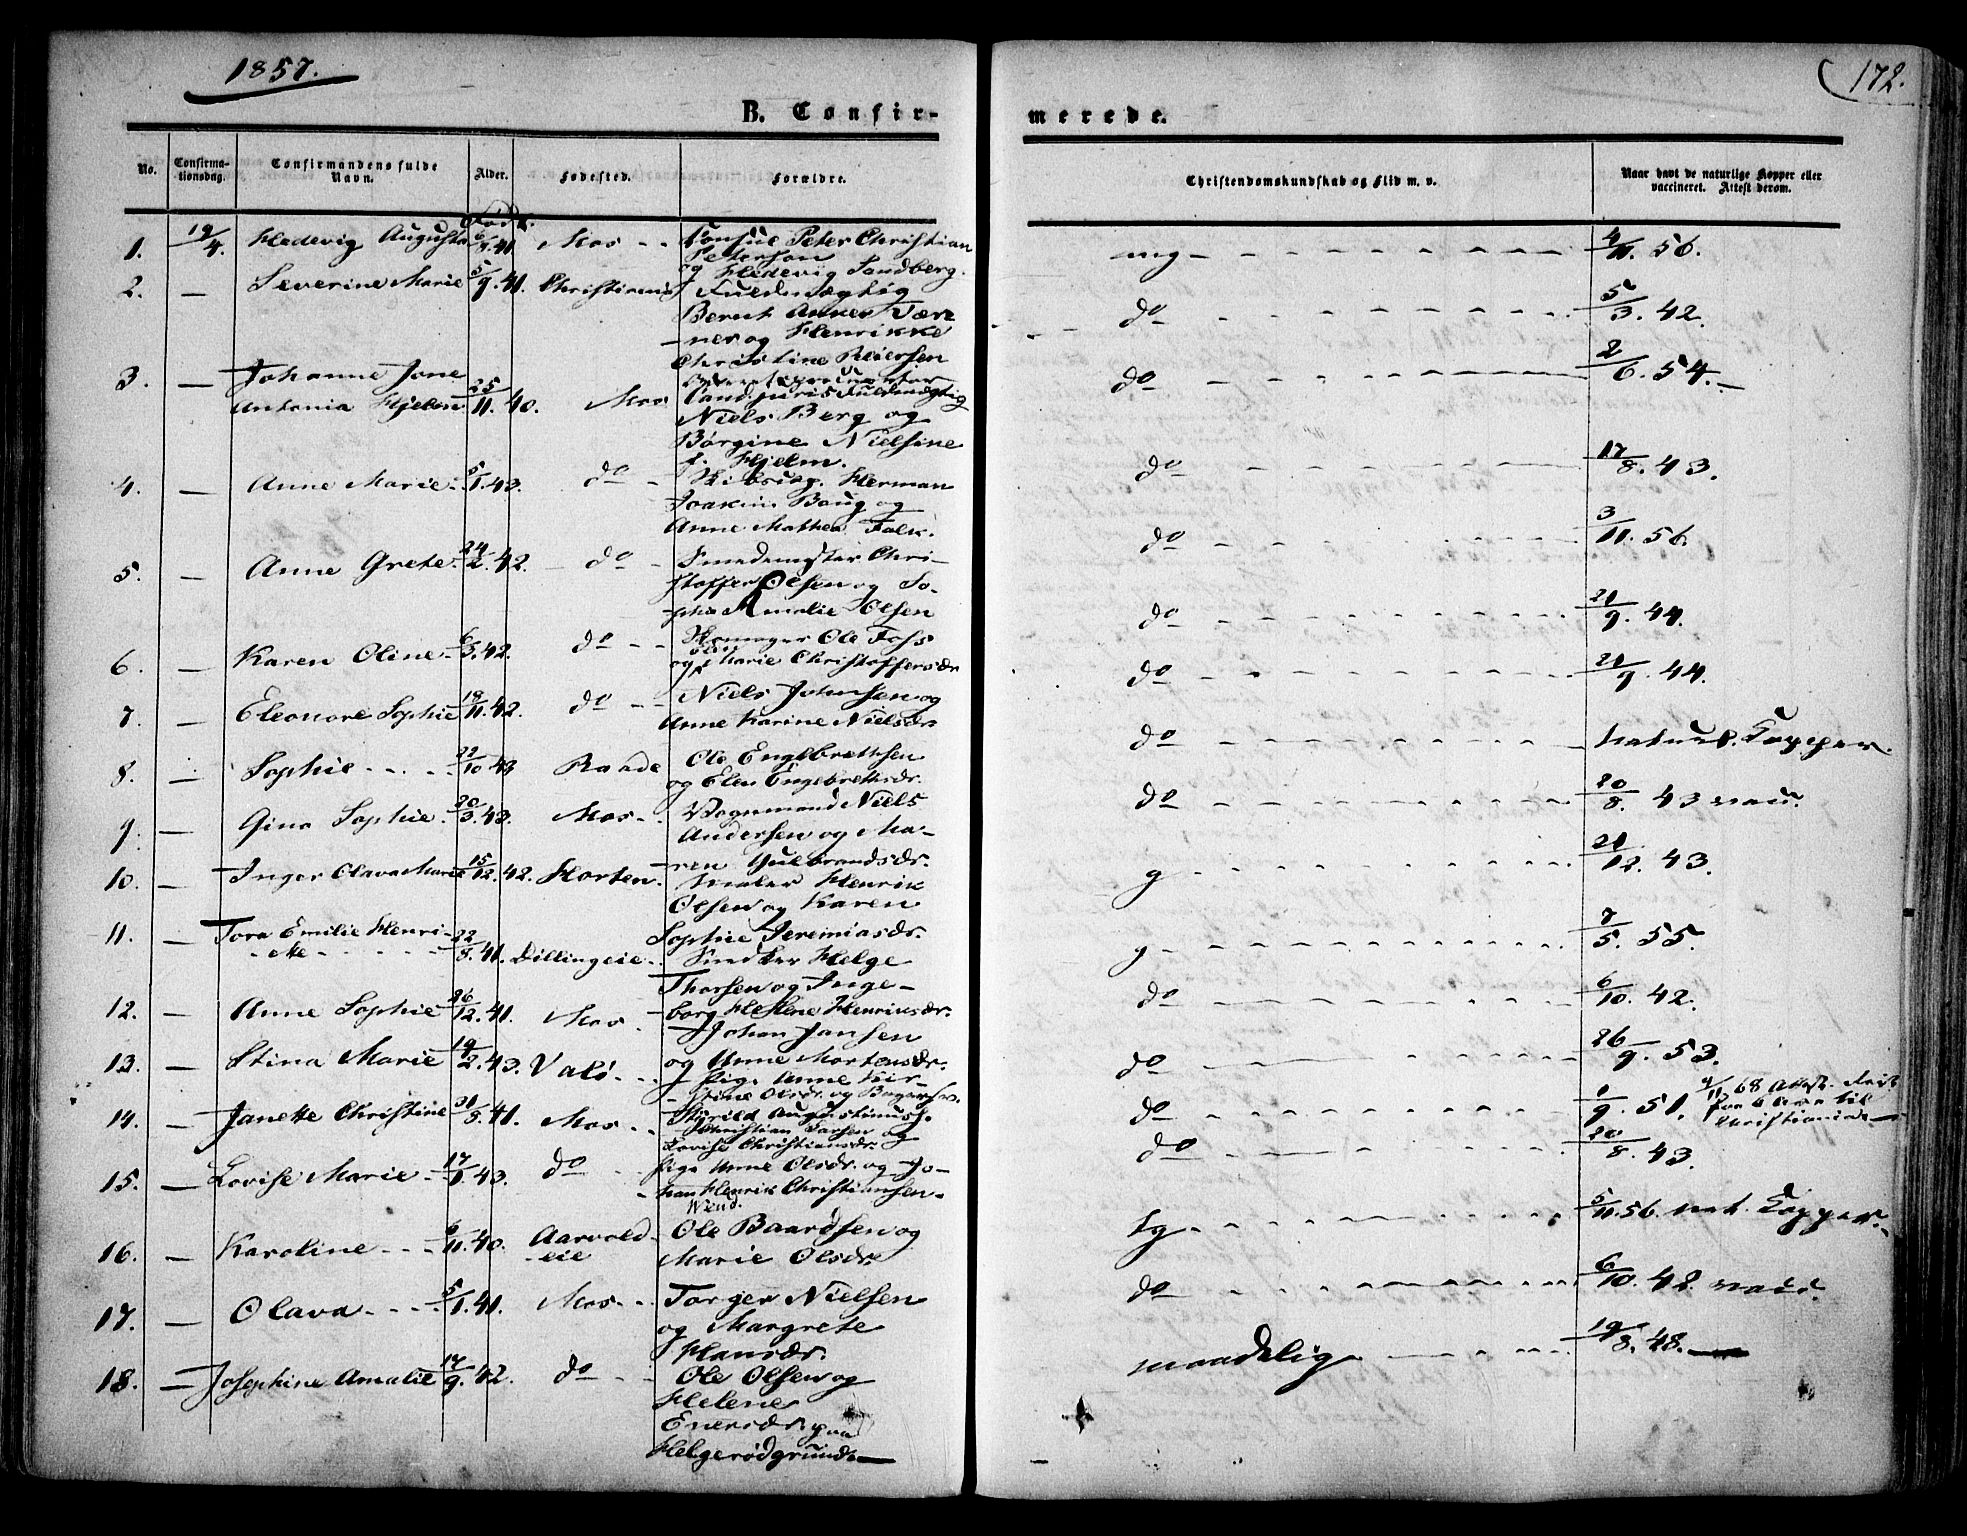 1857.
172.
B. Confir-
merede.
No.
Confirma-
tionsdag.
Confirmandens fulde
Navn.
Alder.
Fødested.
Forældre.
Christendomskundskab og Flid m. v.
Naar havt de naturlige Kopper eller
vaccineret. Attest derom.
Født.
1. 19/4. Hedevig Augusta 6/8. 41 Mos - - Consul Peter Christian
Peterson
og Hedevig Sandberg.
mg - 4/11. 56.
2. — Severine Marie 5/9. 41. Christiania Fuldmægtig
Bernt Anker Tær
-ner og Henrikke
Christine Reiersen
do 5/3. 42.
3. — Johanne Jane
Antonia Hjelm. 25/11. 40. Mos
Cand. juris Fuldmægtig
Niels Berg og
Børgine Nielsine
f. Hjelm.
do 2/6. 54. —
4. — Anne Marie - 5/1. 43. do - Skibscap. Herman
Joakim Baug og
Anne Mathea Falk.
do 17/8. 43.
5. — Anne Grete - 24/2. 42. do - Smedemester Chri-
stoffer Olsen og So-
phie Amalie Olsen
do 3/11. 56.
6. — Karen Oline - 6/3. 42. do - - Skomager Ole Foss
og Marie Christoffersdr
do 21/9. 44.
7. — Eleonore Sophie 18/11. 42. do - - Niels Johnsen og
Anne Karine Nielsdr
do 21/9. 44.
8. — Sophie - - - - 22/10 43 Raade Ole Englbrettsen
og Elen Engebrettsdr.
do naturl. Kopper.
9. — Gina Sophie. 20/3. 43. Mos - - Vognmand Niels
Andersen og Ma-
ren Gulbrandsdr.
do 20/8. 43 vacc.
10. — Inger Olava Marie 15/12. 42. Horten. Maler Henrik
Olsen og Karen
Sophie Jeremiasdr.
g 21/12. 43.
11. — Tora Emilie Henri-
-ette - - - - 22/8. 41. Dillingeie - - Snedker Helge
Thorsen og Inge-
borg Helene Henriksdr.
g - 7/5. 55.
12. — Anne Sophie - 26/12. 41. Mos - Johan Jansen
og Anne Mortensdr.
do 6/10. 42.
13. — Stina Marie 19/2. 43. Valø - - Pige Anne Kir-
stine Olsdr. og
do 26/9. 53.
14. — Janette Christine 21/8. 41. Mos - -
Christian Larsen og
Lovise Christiansdr.
do 1/9. 51. 4/11 68 Attest.
til
Christiania —
15. — Lovise Marie - 17/1. 43. do - - Pige Anne Olsdr. og Jo-
han Henrik Christiansen -
Wend.
do 20/8. 43.
16. — Karoline - - - 6/11. 40. Aarvold
-eie
Ole Baardsen og
Marie Olsdr.
tg - 5/11. 56. nat. Kopper. -
17. — Olava - - - 5/1. 41. Mos - - - Torger Nielsen
og Margrete
Hansdr.
do 6/10. 42 vacc.
18. — Josephine Amalie 17/9. 42. do - - Ole Olsen og
Helene
Enersdr. paa
Helgerødgrunde —
maadelig 19/8. 48. —